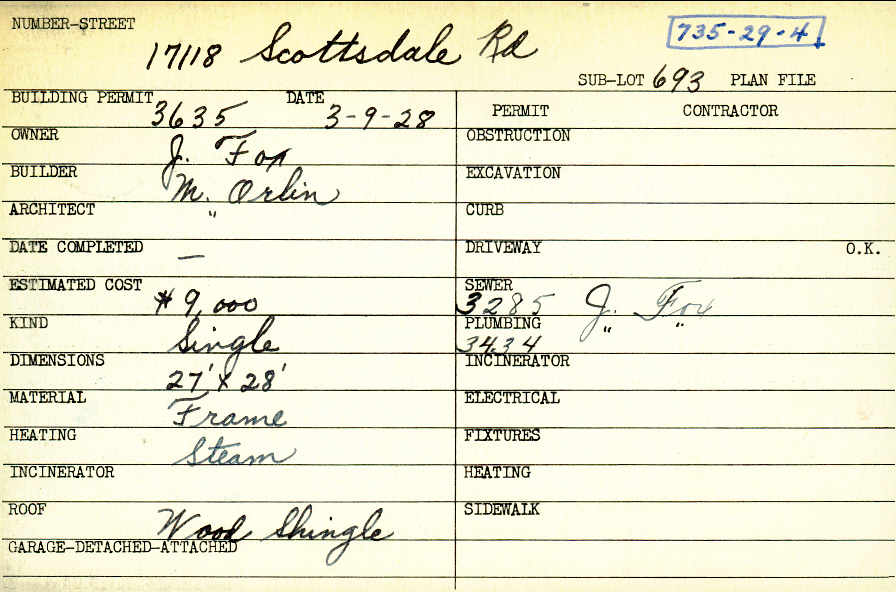 NUMBER-STREET
17118 Scottsdale Rd
735-29-4
SUB-LOT 693 PLAN FILE
BUILDING PERMIT 3635 DATE 3-9-28
PERMIT CONTRACTOR
OWNER J. Fox
OBSTRUCTION
BUILDER M. Orlin
EXCAVATION
ARCHITECT "
CURB
DATE COMPLETED —
DRIVEWAY O.K.
ESTIMATED COST $9,000
SEWER 3285 J. Fox
KIND Single
PLUMBING 3434 " "
DIMENSIONS 27' x 28'
INCINERATOR
MATERIAL Frame
ELECTRICAL
HEATING Steam
FIXTURES
INCINERATOR
HEATING
ROOF Wood Shingle
SIDEWALK
GARAGE-DETACHED-ATTACHED